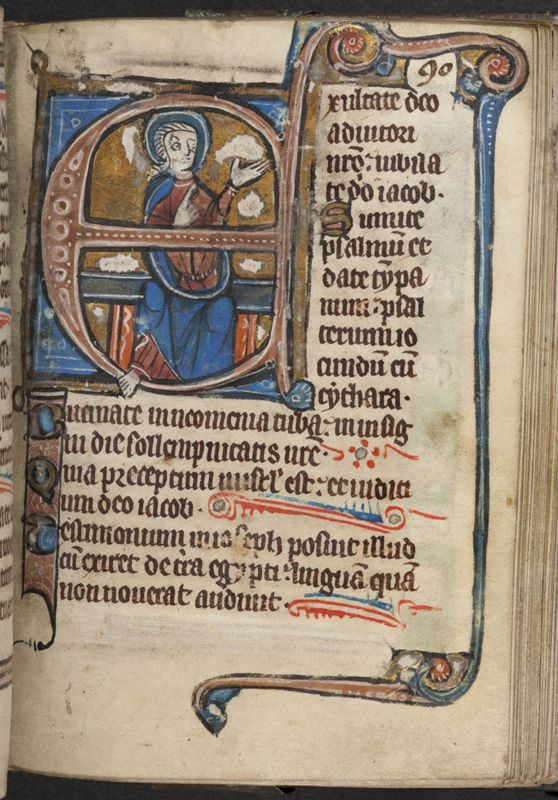 90
Exultate dṡo
adiutori
nr̄o ⁊ iubila
te dō iacob.
Sumite
psalmū et
date tȳpa
num ⁊ psal
terium io
cundū cū
cythara.
Bucinate in neomenia tuba ⁊ in insig
ni die sollempnitatis ur̄e
Quia preceptum in isrl̄ est ⁊ et iudici
um deo iacob.
Testimonium in ioseph posuit illud
cū exiret de t̄ra egypti ⁊ linguā quā
non nouerat audiuit.